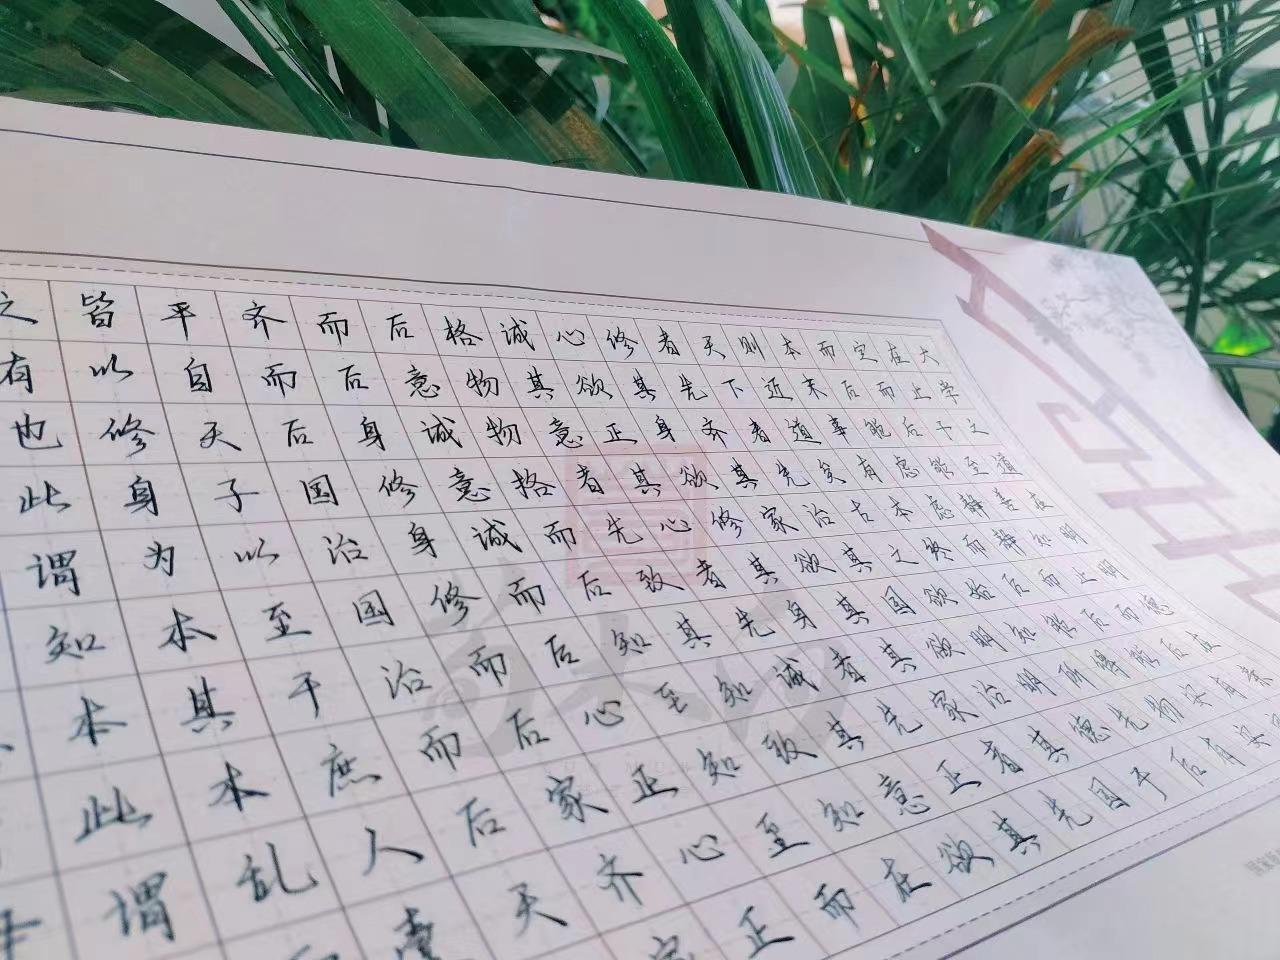 大学之道在明明德在亲
在止于至善知止而后有
定而后能静静而后能安安
而后能虑虑而后能得物有
本末事有本终始知所先后
则近道矣古之欲明明德于
天下者先治其国欲治其国
者先齐其家欲齐其家者先
修其身欲修其身者先正其
心欲正其心者先诚其意欲
诚其意者先致其知致知在
格物物格而后知至知至而
后意诚意诚而后心正心正
而后身修身修而后家齐家
齐而后国治国治而后天
平自天子以至于庶人壹
皆以修身为本其本乱
之有也此谓知本此谓